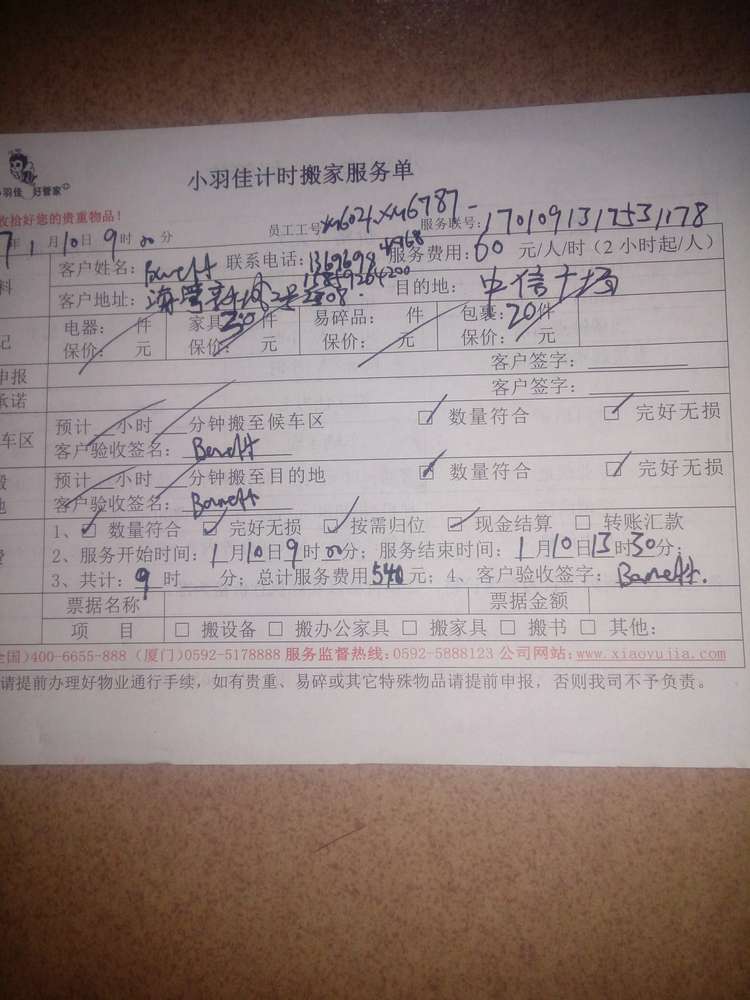 小羽佳 好管家
小羽佳计时搬家服务单
收拾好您的贵重物品！
员工工号 xm6021.xm6787 服务联号: 1701091317531178
7年1月10日9时00分
客户姓名: Barrett 联系电话: 服务费用: 60 元/人/时（2 小时起/人）
15859264200
客户地址: 海湾新城2号2808. 目的地: 中信广场
电器: 件 家具: 20件 易碎品: 件 包裹: 20件
保价: 元 保价: 元 保价: 元 保价: 元
申报 客户签字:
承诺 客户签字:
预计 小时 分钟搬至候车区 ☑ 数量符合 ☑ 完好无损
车区 客户验收签名: Barrett
预计 小时 分钟搬至目的地 ☑ 数量符合 ☑ 完好无损
地 客户验收签名: Barrett
1、☑ 数量符合 ☑ 完好无损 ☑ 按需归位 ☑ 现金结算 □ 转账汇款
2、服务开始时间: 1月10日9时00分; 服务结束时间: 1月10日13时30分;
3、共计: 9时 分; 总计服务费用540元; 4、客户验收签字: Barrett.
票据名称 票据金额
项 目 □ 搬设备 □ 搬办公家具 □ 搬家具 □ 搬书 □ 其他:
全国)400-6655-888 (厦门)0592-5178888 服务监督热线:0592-5888123 公司网站:www.xiaoyujia.com
请提前办理好物业通行手续，如有贵重、易碎或其它特殊物品请提前申报，否则我司不予负责。